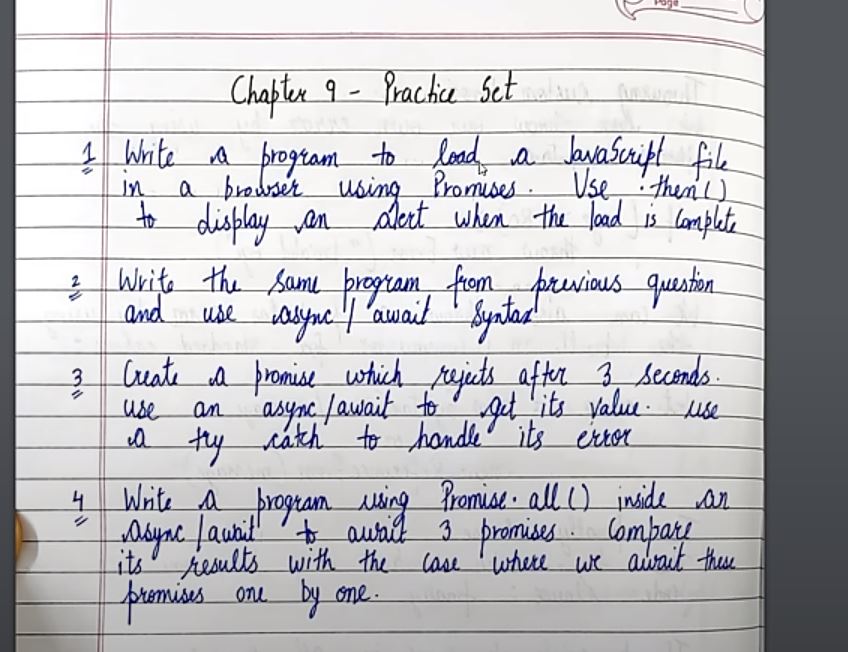 Page
Chapter 9 - Practice Set
1 Write a program to load a JavaScript file
in a browser using Promises. Use .then()
to display an alert when the load is complete
2 Write the same program from previous question
and use async/await Syntax
3 Create a promise which rejects after 3 seconds.
use an async/await to get its value. use
a try catch to handle its error
4 Write a program using Promise.all() inside an
async/await to await 3 promises. Compare
its results with the case where we await these
promises one by one.